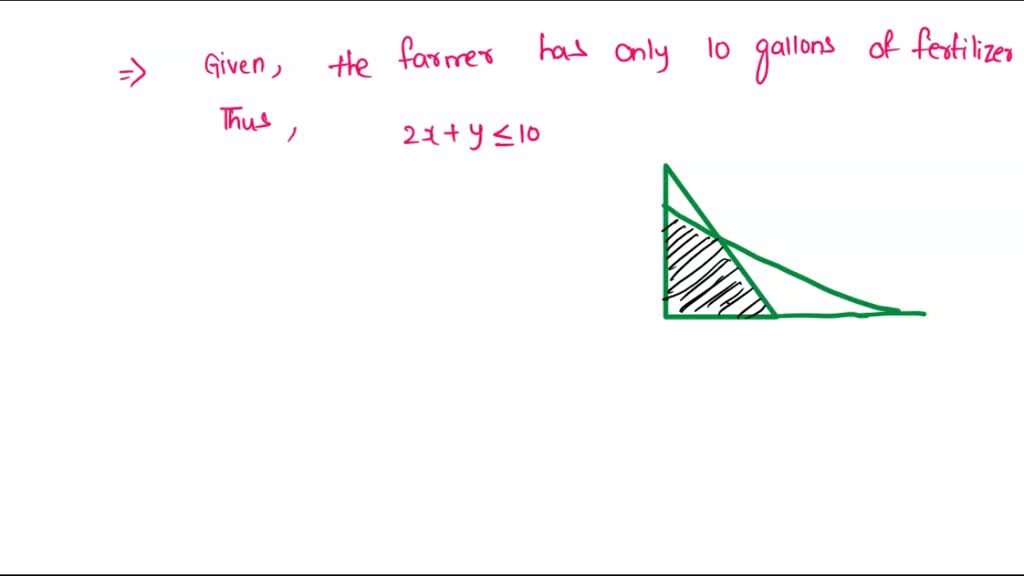 ⇒ Given, the farmer has only 10 gallons of fertilizer
Thus, 2x + y ≤ 10